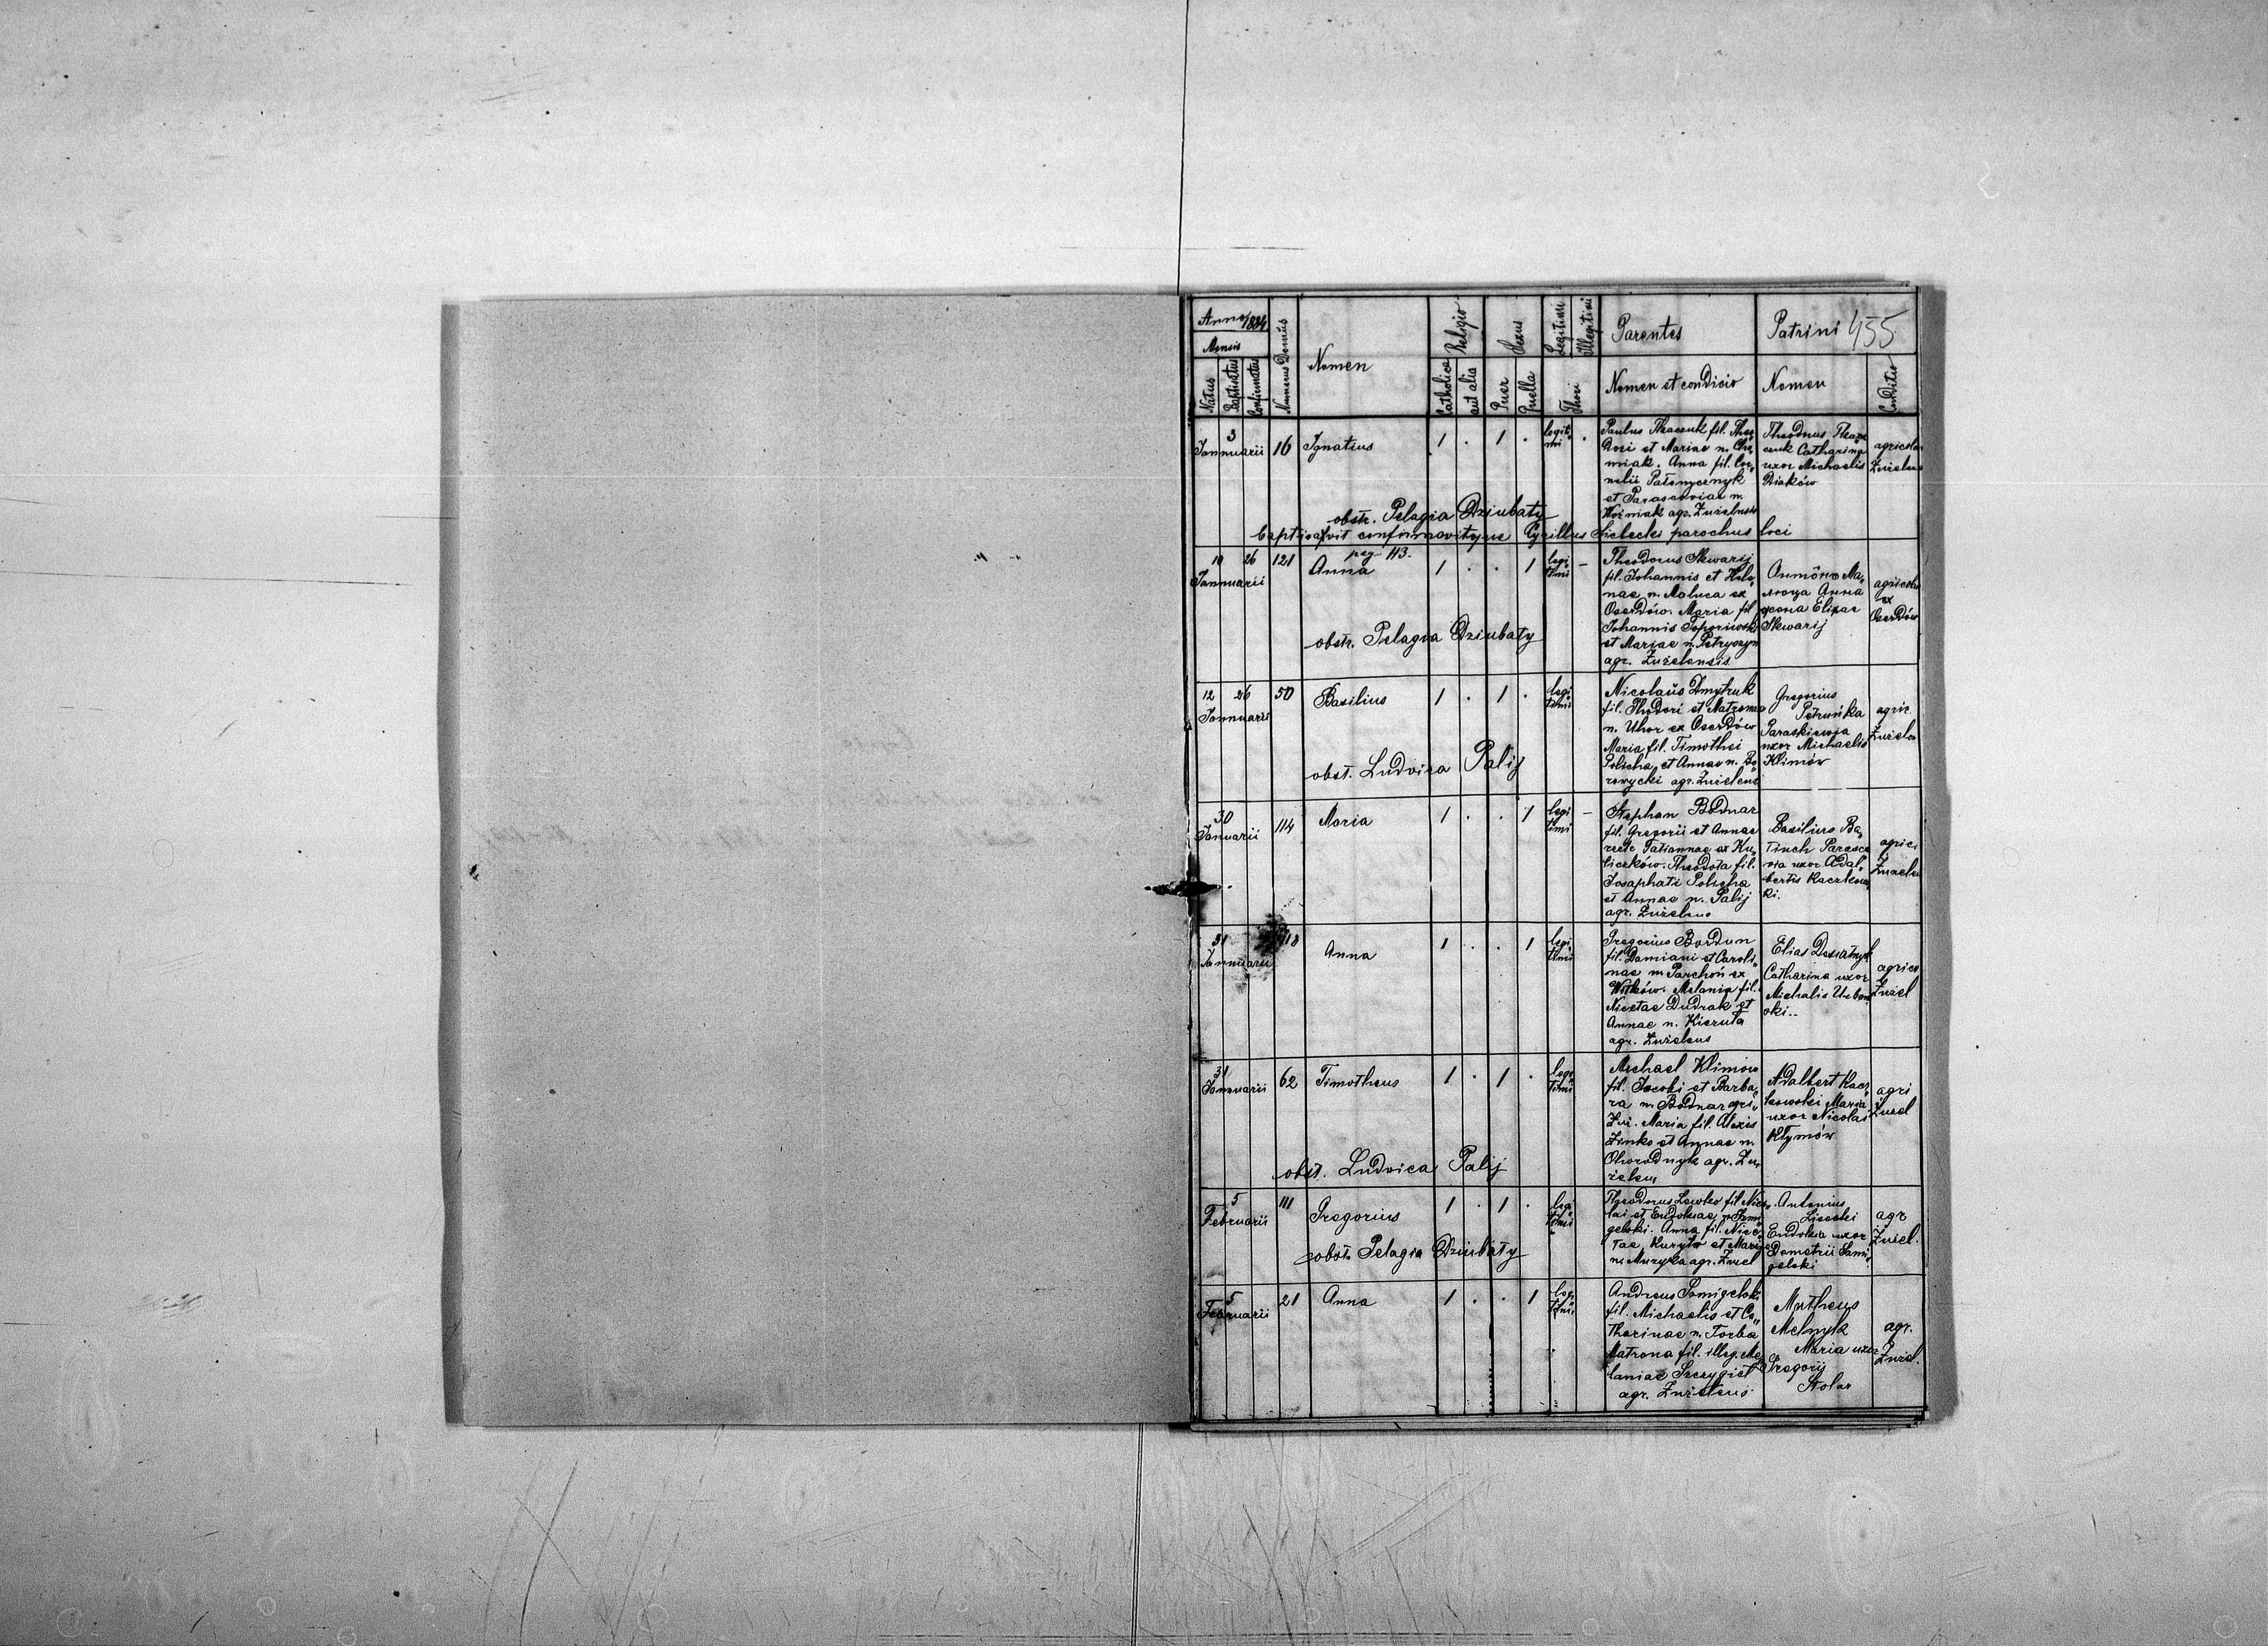 Anno 1884
Mensis
Natus
Baptisatus
Confirmatus
Numerus Domûs
Nomen
Religio
Catholica
aut alia
Sexus
Puer
Puella
Legitimi
Illegitimi
Thori
Parentes
Nomen et condicio
Patrini 455
Nomen
Conditio
3
Januarii
16
Ignatius
1 . 1 .
legiti
mi
Paulus Tkaczuk fil. Theo
dori et Mariae n. Cho
miak. Anna fil. Cor
nelii
et Parascoviae n.
Woźniak agr. Żużelensis
Theodorus Tkacz
czuk Catharina
uxor Michaelis
Diaków
agricolae
Żużelens
obstr. Pelagia Dziubaty
baptisavit confirmavitque Cyrillus Sielecki parochus loci
10 26
Januarii
121
pag. 113.
Anna
1 . . 1
legi
timi
–
Theodorus Skwarij
fil. Johannis et Hele
nae n. Maluca ex
Oserdów. Maria fil.
Johannis
et Mariae n. Petryszyn
agr. Żużelensis
Anna
Elizae
Skwarij
agricolae
ex
Oserdów
obstr. Pelagia Dziubaty
12 26
Januarii
50
Basilius
1 . 1 .
legi
timi
Nicolaus Dmytruk
fil. Thodori et Matronae
n. Uhor ex Oserdów
Maria fil. Timothei
Policha et Annae n. Bo
rowycki agr. Żużelens
Gregorius
Petruńka
Paraskiewia
uxor Michaelis
Klimów
agric.
Żużelen
obst. Ludvica Palij
30
Januarii
114
Maria
1 . . 1
legi
timi
–
Stephan Bodnar
fil. Gregorii et Annae
recte Tatiannae ex Ku
liczków. Theodota fil.
Josaphati Policha
et Annae n. Palij
agr. Żużelens
Basilius Ba
Parasce
via uxor Adal
bertis Kaczkows
ki.
agric.
Żużelen
31
Januarii
118
Anna
1 . . 1
legi
timi
Gregorius Bordun
fil. Damiani et Caroli
nae n. Parchoń ex
Witków. Melania fil.
Nicetae Dudrak et
Annae n. Kieruta
agr. Żużelens
Elias
Catharina uxor
Michalis Urban
ski..
agrico
Żużel
31
Januarii
62
Timotheus
1 . 1 .
legi
timi
Michael Klimow
fil. Jacobi et Barba
ra n. Bodnar agri
Żuż. Maria fil. Alexis
Zinko et Annae n.
Ohorodnyk agr. Żu
żelens
Adalbert Kacz
kowski Maria
uxor Nicolai
Klymów
agri
Żużel
obst. Ludvica Palij
5
Februarii
111
Gregorius
1 . 1 .
legi
timi
Theodorus Lewko fil. Nico
lai et Eudokiae n. Sami
gelski. Anna fil. Nice
tae Kuryło et Mariae
n. Muzyka agr. Żużel
Antonius
Lisecki
Eudokia uxor
Demetrii Sami
gelski
agr
Żużel.
obst. Pelagia Dziubaty
5
Februarii
21
Anna
1 . . 1
legi
timi
Andreas Samigelski
fil. Michaelis et Ca
tharinae n. Torba
Matrona fil. illeg. Me
laniae Szczygieł
agr. Żużelens
Matheus
Melnyk
Maria uxor
Gregorij
Stolar
agr.
Żużel.